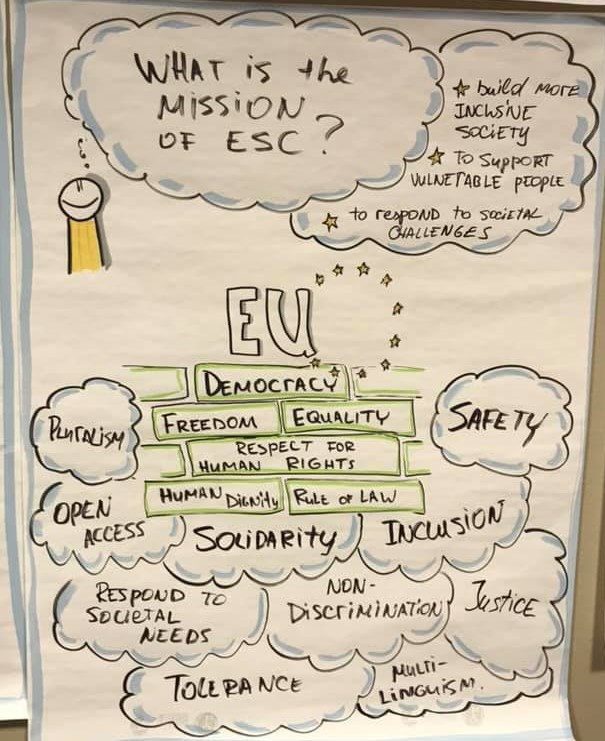 WHAT is the
MISSION
OF ESC?
build MORE
INCLUSIVE
SOCIETY
TO SUPPORT
VULNERABLE PEOPLE
to RESPOND to SOCIETAL
CHALLENGES
EU
DEMOCRACY
FREEDOM
EQUALITY
RESPECT FOR
HUMAN RIGHTS
HUMAN DIGNITY
RULE OF LAW
PLURALISM
SAFETY
OPEN
ACCESS
SOLIDARITY
INCLUSION
RESPOND TO
SOCIETAL
NEEDS
NON-
DISCRIMINATION
JUSTICE
TOLERANCE
MULTI-
LINGUISM.